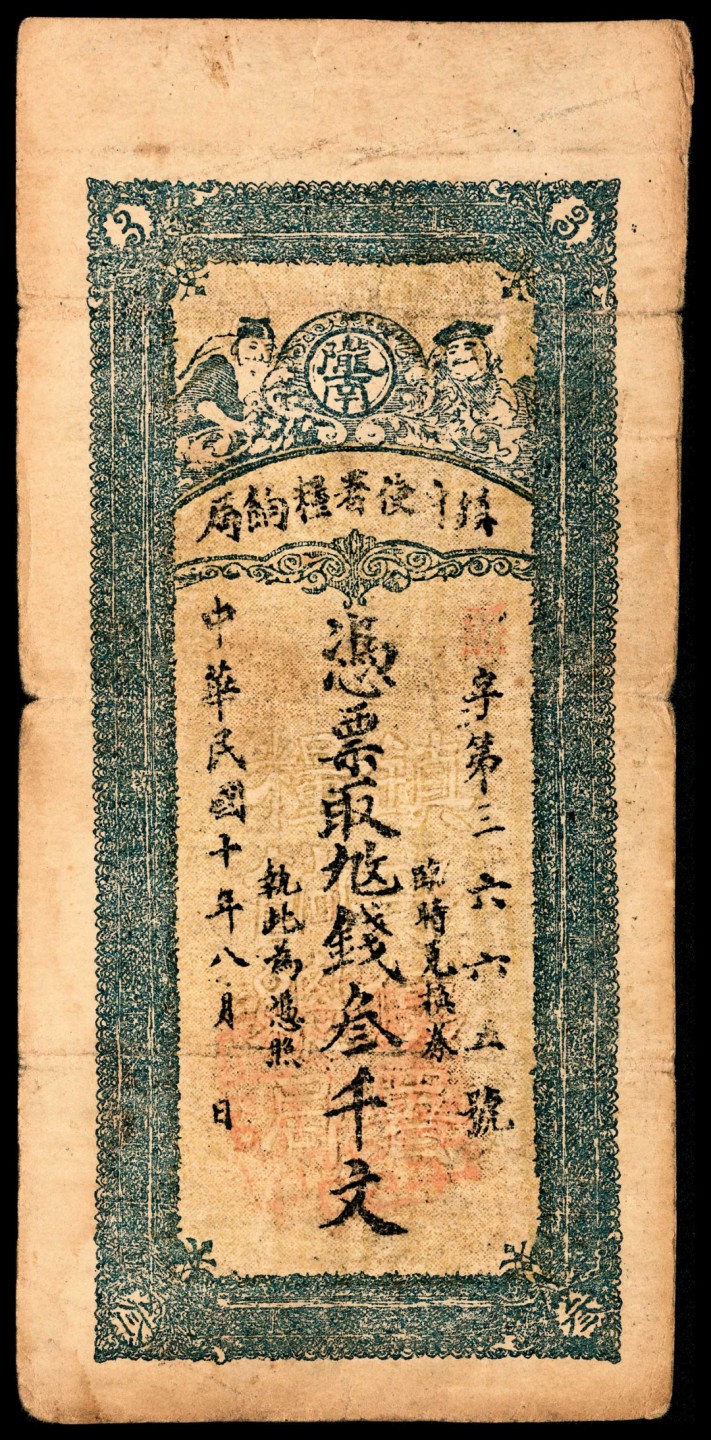 隴南
鎮守使署糧餉局
字第三六六五號
臨時兌換券
憑票取制錢叁千文
執此為憑照
中華民國十年八月 日
3
3